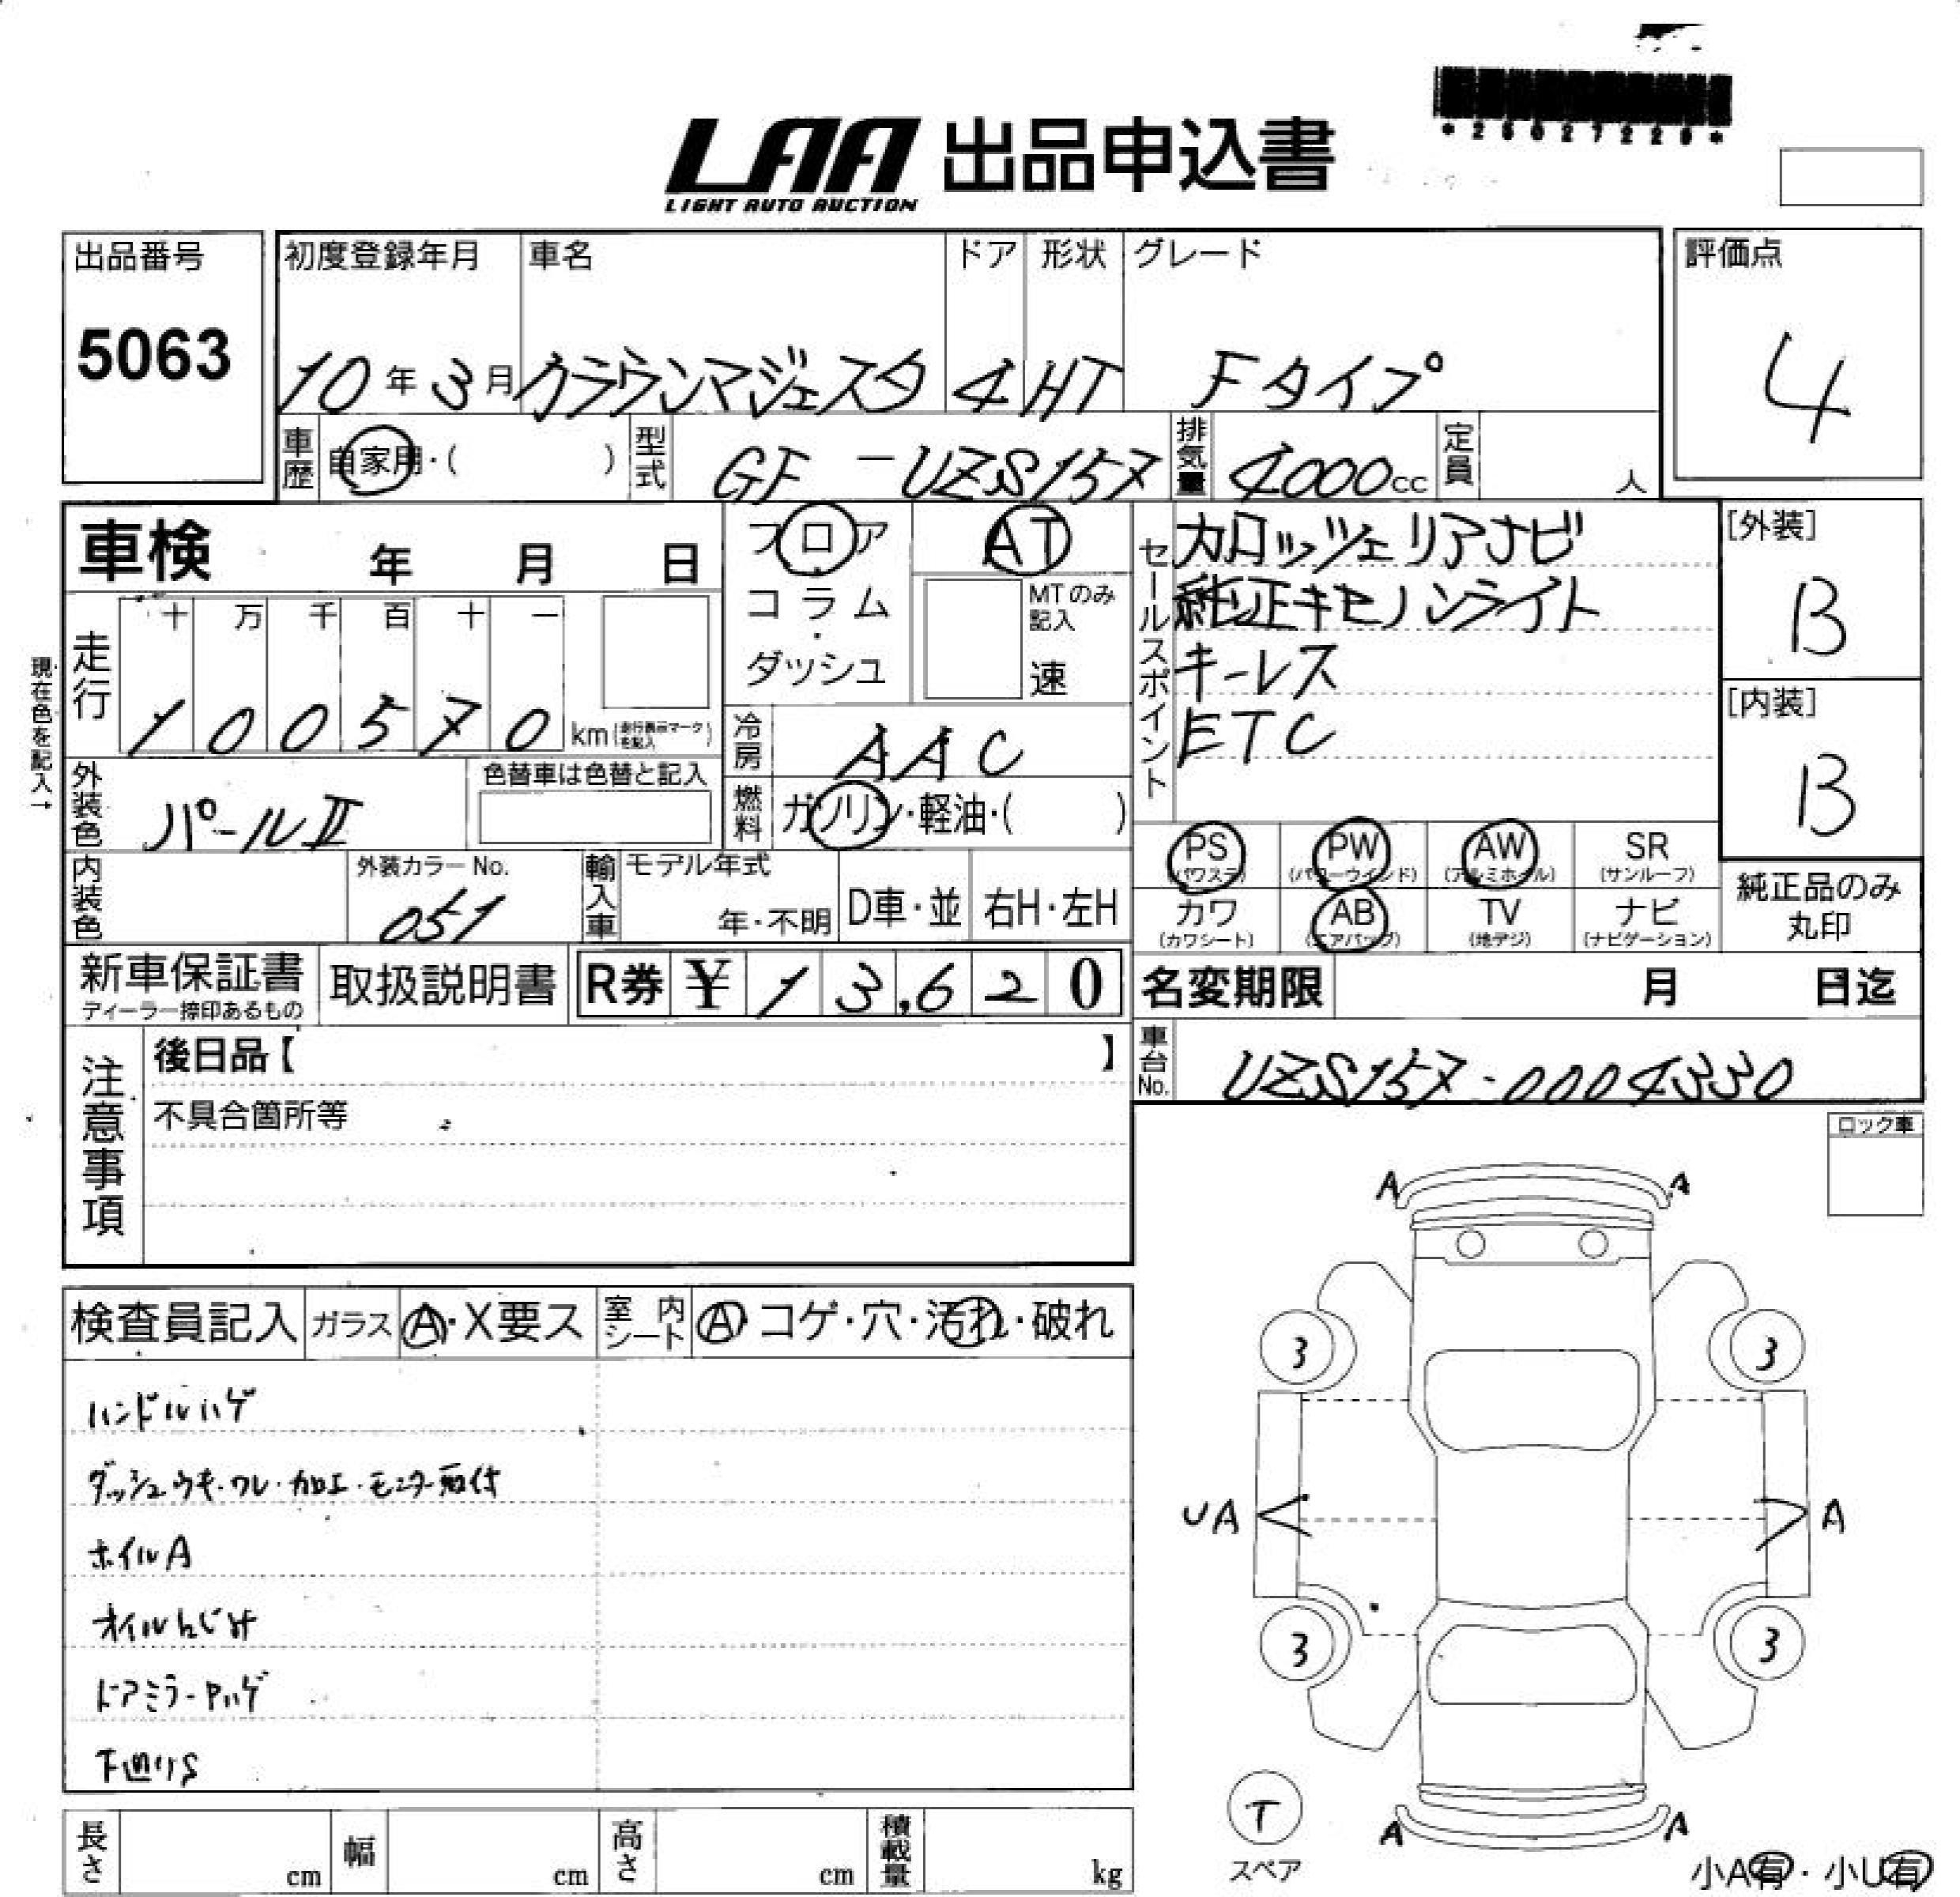 LAA 出品申込書
LIGHT AUTO AUCTION
出品番号
5063
初度登録年月
10年3月
車名
クラウンマジェスタ
ドア
4
形状
HT
グレード
Fタイプ
評価点
4
車歴
自家用・( )
型式
GF-UZS157
排気量
4000cc
定員
人
車検 年 月 日
フロア
コラム
・
ダッシュ
AT
MTのみ記入
速
セールスポイント
カロッツェリアナビ
純正キセノンライト
キーレス
ETC
[外装]
B
[内装]
B
現在色を記入→
走行
十 万 千 百 十 一
1 0 0 5 7 0 km (走行表示マークを記入)
冷房
AAC
外装色
パールⅡ
色替車は色替と記入
燃料
ガソリン・軽油・( )
内装色
外装カラーNo.
051
輸入車
モデル年式
年・不明
D車・並
右H・左H
PS (パワステ)
PW (パワーウインド)
AW (アルミホイル)
SR (サンルーフ)
カワ (カワシート)
AB (エアバッグ)
TV (地デジ)
ナビ (ナビゲーション)
純正品のみ
丸印
新車保証書
ディーラー捺印あるもの
取扱説明書
R券 ¥ 1 3,6 2 0
名変期限 月 日迄
車台No.
UZS157-0004330
注意事項
後日品【 】
不具合箇所等
ロック車
検査員記入
ガラス
A・X要ス
室内シート
A コゲ・穴・汚れ・破れ
ハンドルハゲ
ダッシュウキ・ワレ・加工・モニター取付
ホイルA
オイルにじみ
ドアミラーPハゲ
下廻りS
A A
3 3
UA A
3 3
A A
T
スペア
小A有・小U有
長さ cm
幅 cm
高さ cm
積載量 kg